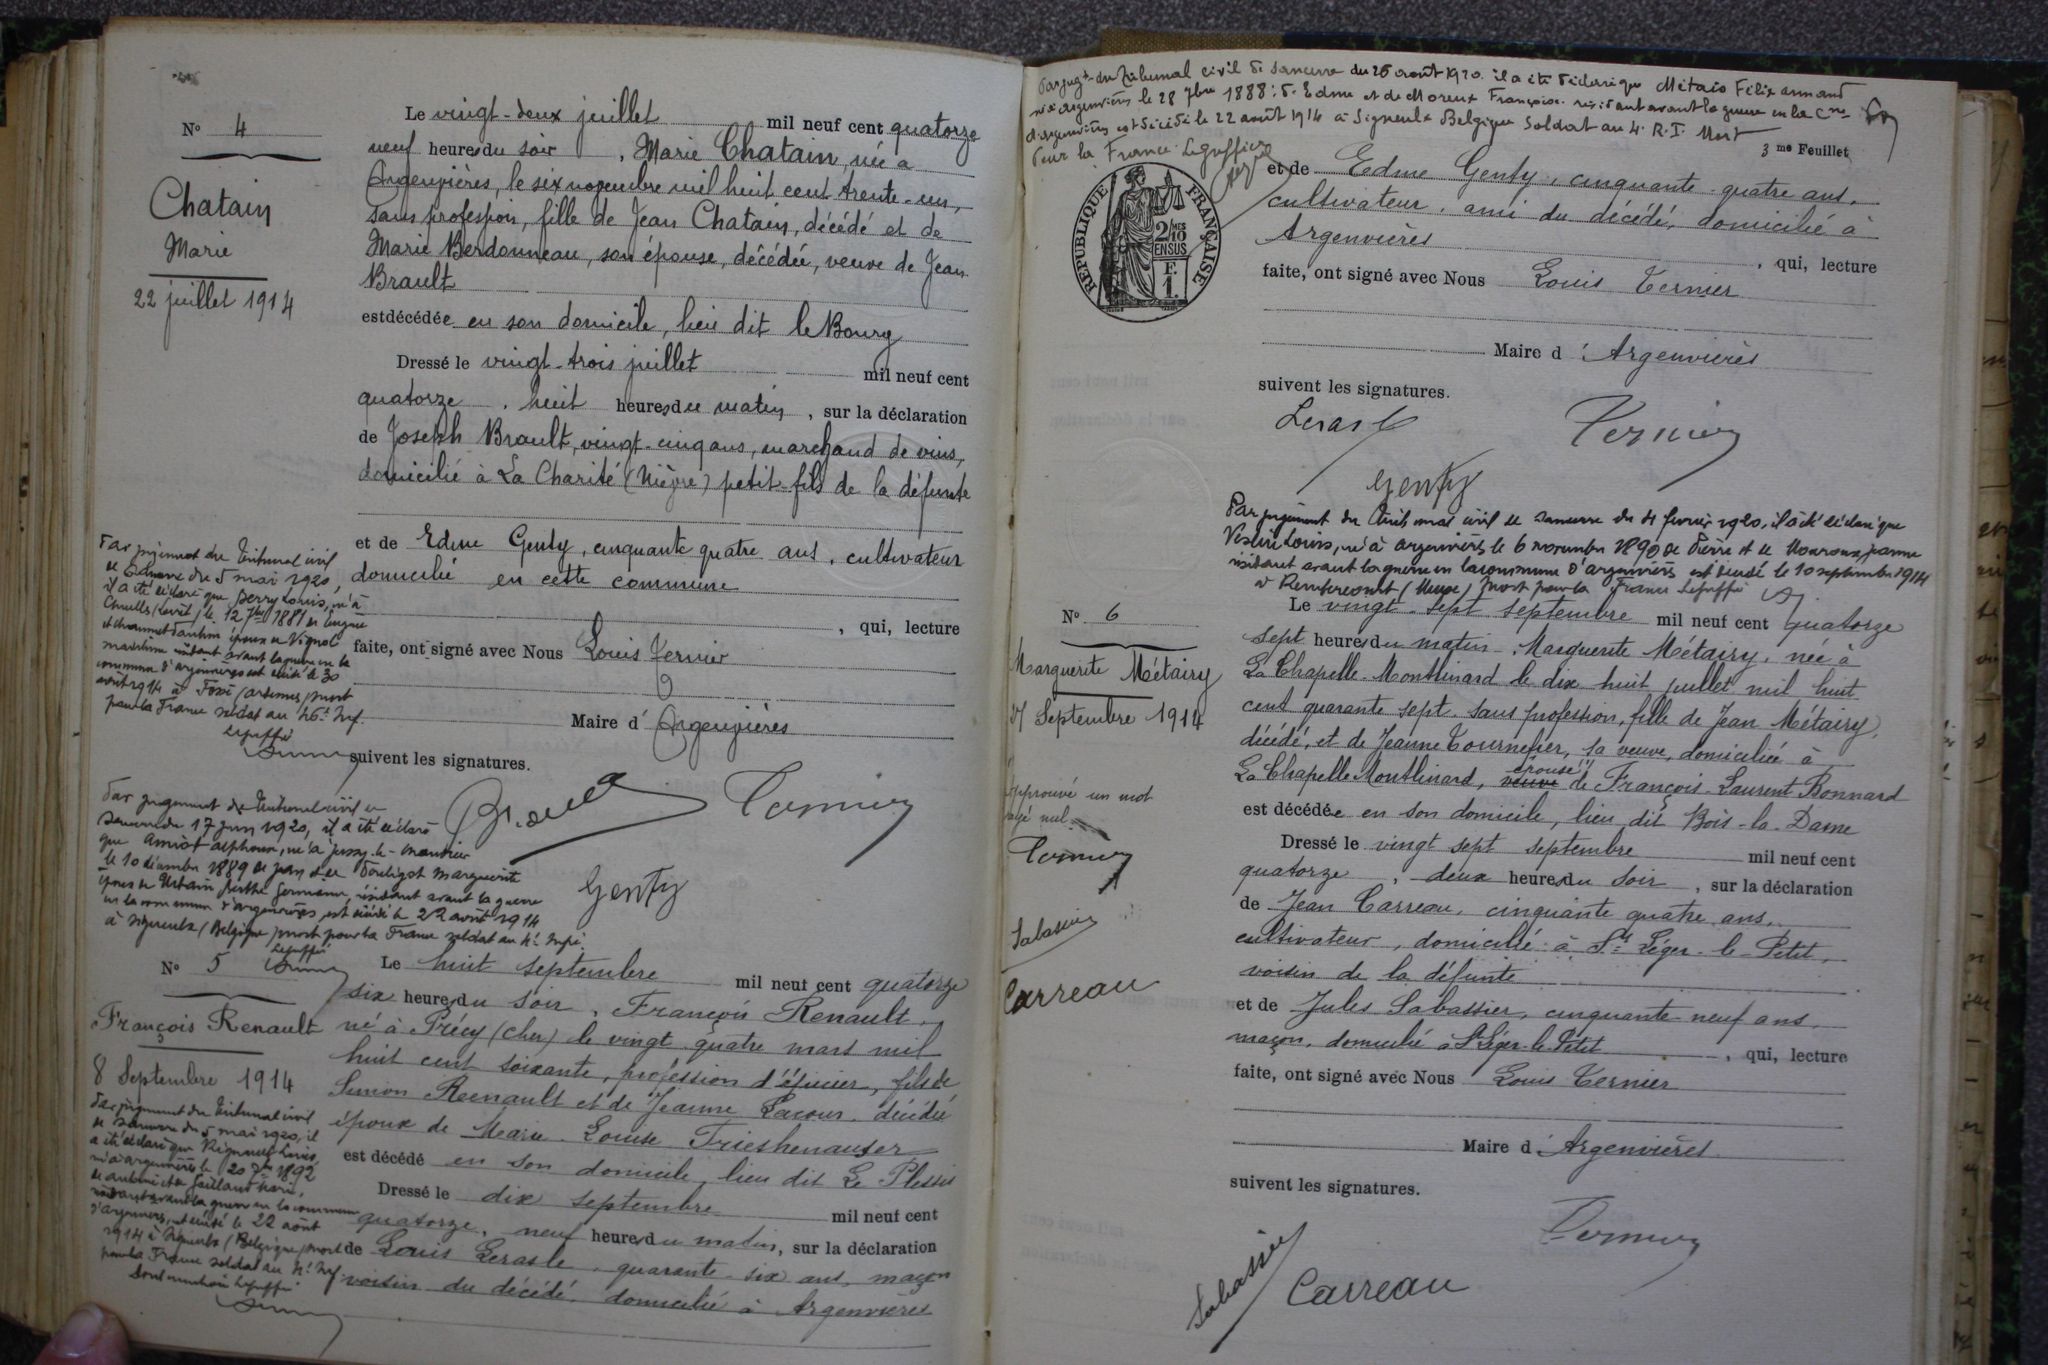 N° 4
Chatain
Marie
22 juillet 1914
Le vingt-deux juillet mil neuf cent quatorze
neuf heures du soir, Marie Chatain, née à
Argenvières, le six novembre mil huit cent trente-un,
sans profession, fille de Jean Chatain, décédé et de
Marie Berdonneau, son épouse, décédée, veuve de Jean
Brault
est décédée en son domicile, lieu dit le Bourg
Dressé le vingt-trois juillet mil neuf cent
quatorze, huit heures du matin, sur la déclaration
de Joseph Brault, vingt-cinq ans, marchand de vins,
domicilié à La Charité (Nièvre) petit-fils de la défunte
et de Edme Genty, cinquante quatre ans, cultivateur
domicilié en cette commune
, qui, lecture
faite, ont signé avec Nous Louis Ternier
Maire d'Argenvières
suivent les signatures.
Ternier
Genty
Par jugement du Tribunal civil
de Sancerre du 5 mai 1920,
il a été déclaré que Perry Louis, né à
(Loiret) le 12 7bre 1881 de
époux de
résidant avant la guerre en la
commune d'Argenvières est décédé le 30
août 1914 à Fossé (Ardennes) mort
pour la France soldat au 46e Inf.
Le greffier
Par jugement du Tribunal civil de
Sancerre du 17 juin 1920, il a été déclaré
que Amiot Alphonse, né à Jussy-le-Chaudrier
le 10 décembre 1889 de Jean et de Marguerite
époux de Berthe Germaine, résidant avant la guerre
en la commune d'Argenvières, est décédé le 22 août 1914
à Signeulx (Belgique) mort pour la France soldat au 4e Infie.
Le greffier
N° 5
François Renault
8 Septembre 1914
Le huit septembre mil neuf cent quatorze
six heures du soir, François Renault,
né à Précy (Cher) le vingt quatre mars mil
huit cent soixante, profession d'épicier, fils de
Simon Renault et de Jeanne Lacour, décédée
époux de Marie-Louise Trieshenauser
est décédé en son domicile, lieu dit Le Plessis
Dressé le dix septembre mil neuf cent
quatorze, neuf heures du matin, sur la déclaration
de Louis Lerasle, quarante-six ans, maçon
voisin du décédé, domicilié à Argenvières
Par jugement du Tribunal civil
de Sancerre du 5 mai 1920, il
a été déclaré que Louis
né à Argenvières le 20 7bre 1892
de et de Gaillard Marie,
résidant avant la guerre en la commune
d'Argenvières, est décédé le 22 août
1914 à Signeulx (Belgique) mort
pour la France soldat au 4e Inf.
Le greffier
Par jugt du Tribunal civil de Sancerre du 26 août 1920. il a été déclaré que Métais Félix Armand
né à Argenvières le 28 7bre 1888 : d'Edme et de Moreux Françoise. résidant avant la guerre en la Cne
d'Argenvières est décédé le 22 août 1914 à Signeulx Belgique Soldat au 4e R. I. Mort
Pour la France. Le greffier
3me Feuillet
RÉPUBLIQUE FRANÇAISE
2/10 MES
EN SUS
F.
1.
et de Edme Genty, cinquante-quatre ans,
cultivateur, ami du décédé, domicilié à
Argenvières
, qui, lecture
faite, ont signé avec Nous Louis Ternier
Maire d'Argenvières
suivent les signatures.
Lerasle
Ternier
Genty
Par jugement du Tribunal civil de Sancerre du 4 février 1920, il a été déclaré que
Louis, né à Argenvières le 6 novembre 1890 de Pierre et de Jeanne
résidant avant la guerre en la commune d'Argenvières est décédé le 10 septembre 1914
à Rembercourt (Meuse) mort pour la France Le greffier
N° 6
Marguerite Métairy
27 Septembre 1914
Approuvé un mot
rayé nul.
Ternier
Sabassier
Carreau
Le vingt-sept septembre mil neuf cent quatorze
sept heures du matin, Marguerite Métairy, née à
La Chapelle-Montlinard le dix huit juillet mil huit
cent quarante sept, sans profession, fille de Jean Métairy,
décédé, et de Jeanne Tournefier, sa veuve, domiciliée à
épouse
La Chapelle Montlinard, veuve de François-Laurent Bonnard
est décédée en son domicile, lieu dit Bois-la-Dame
Dressé le vingt sept septembre mil neuf cent
quatorze, deux heures du soir, sur la déclaration
de Jean Carreau, cinquante quatre ans,
cultivateur, domicilié à St Léger-le-Petit,
voisin de la défunte
et de Jules Sabassier, cinquante-neuf ans,
maçon, domicilié à St Léger-le-Petit, qui, lecture
faite, ont signé avec Nous Louis Ternier
Maire d'Argenvières
suivent les signatures.
Ternier
Sabassier
Carreau